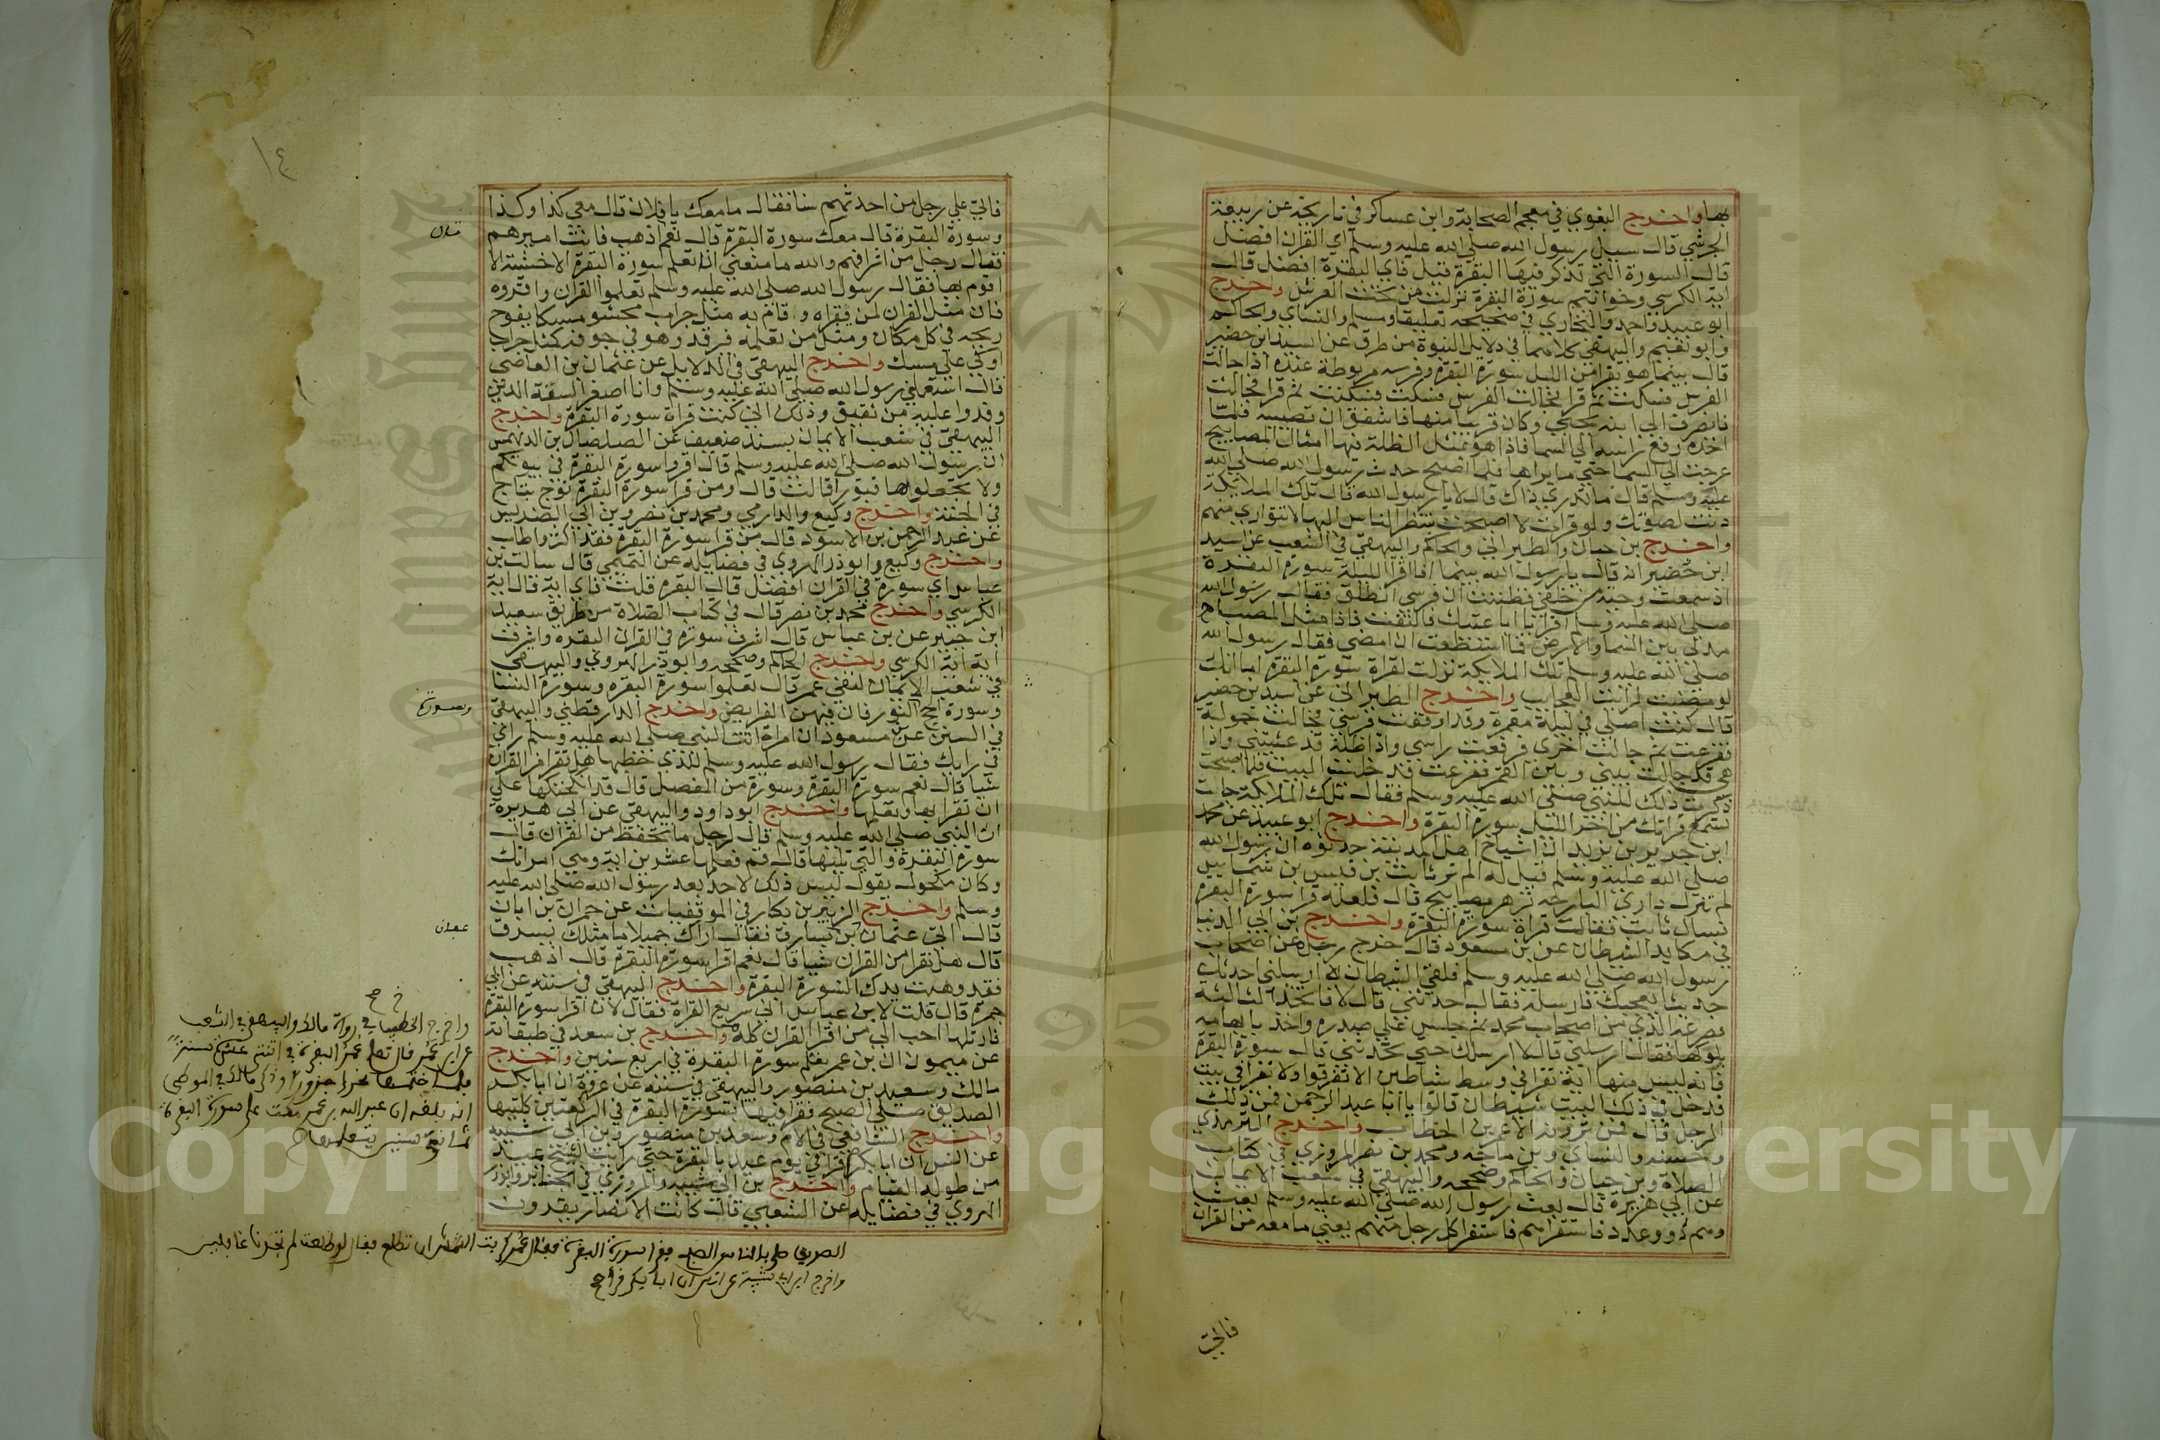 بها واخرج البغوي في معجم الصحابة وابن عساكر في تاريخه عن ربيعة
الجرشي قال سيل رسول الله صلى الله عليه وسلم اي القران افضل
قال السورة التي تذكر فيها البقرة قيل فاي البقرة افضل قال
اية الكرسي وخواتيم سورة البقرة نزلت من تحت العرش واخرج
ابو عبيد واحمد والبخاري في صحيحه تعليقا ومسلم والنساي والحاكم
وابو نعيم والبيهقي كلاهما في دلايل النبوة من طرق عن اسيد ابن حضير
قال بينما هو يقرا من الليل سورة البقرة وفرسه مربوطة عنده اذ جالت
الفرس فسكت فسكنت ثم قرا فجالت الفرس فسكت فسكنت ثم قرا فجالت
فانصرف الي ابنه يحيي وكان قريبا منها فاشفق ان تصيبه فلما
اخذه رفع راسه الي السما فاذا هو بمثل الظلة فيها امثال المصابيح
عرجت الي السما حتي ما يراها فلما اصبح حدث رسول الله صلي الله
عليه وسلم قال ما تدري ذاك قال لا يا رسول الله قال تلك الملايكة
دنت لصوتك ولو قرات لاصبحت تنظر الناس اليها لا تتواري منهم
واخرج بن حبان والطبراني والحاكم والبيهقي في الشعب عن اسيد
ابن حضير انه قال يا رسول الله بينما انا اقرا الليلة سورة البقرة
اذ سمعت وجبة من خلفي فظننت ان فرسي انطلق فقال رسول الله
صلي الله عليه وسلم اقرا ابا عتيك فالتفت فاذا مثل المصباح
مدلي بين السما والارض فما استطعت ان امضي فقال رسول الله
صلي الله عليه وسلم تلك الملايكة نزلت لقراة سورة البقرة اما انك
لو مضيت لرايت العجايب واخرج الطبراني عن اسيد بن حضير
قال كنت اصلي في ليلة مقمرة وقد اوثقت فرسي فجالت جولة
ففزعت ثم جالت اخري فرفعت راسي واذا ظلة قد غشيتني واذا
هي قد حالت بيني وبين القمر ففزعت فدخلت البيت فلما اصبحت
ذكرت ذلك للنبي صلي الله عليه وسلم فقال تلك الملايكة جات
تستمع قراتك من اخر الليل سورة البقرة واخرج ابو عبيد عن محمد
ابن جرير بن يزيد ان اشياخ اهل المدينة حدثوه ان رسول الله
صلي الله عليه وسلم قيل له الم تر ثابت بن قيس بن شماس
لم تزل داره البارحة تزهر مصابيح قال فلعله قرا سورة البقرة
فسال ثابت فقال قراة سورة البقرة واخرج بن ابي الدنيا
في مكايد الشيطان عن بن مسعود قال خرج رجل من اصحاب
رسول الله صلي الله عليه وسلم فلقي الشيطان
حديثا يعجبك فارسله فقال حدثني قال لا فاتخذا الثالثة
فصرعه الذي من اصحاب محمد ثم جلس علي صدره واخذ بابهامه
يلوكها فقال ارسلني قال لا ارسلك حتي تحدثني قال سورة البقرة
فانه ليس منها اية تقرا في وسط شياطين الا تفرقوا ولا تقرا في بيت
فدخل في ذلك البيت شيطان قالوا يا ابا عبد الرحمن فمن ذلك
الرجل قال فمن ترونه الا عمر بن الخطاب واخرج الترمذي
وحسنه والنساي وبن ماجه ومحمد بن نصر المروزي في كتاب
الصلاة وبن حبان والحاكم وصححه والبيهقي في شعب الايمان
عن ابي هريرة قال بعث رسول الله صلي الله عليه وسلم بعثا
وهم ذوو عدد فاستقراهم فاستقرا كل رجل منهم يعني ما معه من القران
فاتي
١٤
فاتي علي رجل من احدثهم سنا فقال ما معك يا فلان قال معي كذا وكذا
وسورة البقرة قال معك سورة البقرة قال نعم اذهب فانت اميرهم
فقال رجل من اشرافهم والله ما منعني ان اتعلم سورة البقرة الا خشية الا
اقوم بها فقال رسول الله صلي الله عليه وسلم تعلموا القران واقروه
فان مثل القران لمن يقراه وقام به مثل جراب محشو مسكا يفوح
ريحه في كل مكان ومثل من تعلمه فرقد وهو في جوفه كمثل جراب
اوكي علي مسك واخرج البيهقي في الدلايل عن عثمان بن العاصي
قال استعملني رسول الله صلي الله عليه وسلم وانا اصغر الستة الذين
وفدوا عليه من ثقيف وذلك اني كنت قراة سورة البقرة واخرج
البيهقي في شعب الايمان بسند ضعيف عن الصلصال بن الدلهمس
ان رسول الله صلي الله عليه وسلم قال اقروا سورة البقرة في بيوتكم
ولا تجعلوها قبورا قالت قال ومن قرا سورة البقرة توج بتاج
في الجنة واخرج وكيع والدارمي ومحمد بن نصر وبن ابي الضريس
عن عبد الرحمن بن الاسود قال من قرا سورة البقرة فقد اكثر واطاب
واخرج وكيع وابو ذر الهروي في فضايله عن التميمي قال سالت بن
عباس اي سورة في القران افضل قال البقرة قلت فاي اية قال اية
الكرسي واخرج محمد بن نصر قال في كتاب الصلاة من طريق سعيد
ابن جبير عن بن عباس قال اشرف سورة في القران البقرة واشرف
اية اية الكرسي واخرج الحاكم وصححه وابو ذر الهروي والبيهقي
في شعب الايمان عمر قال تعلموا سورة البقرة وسورة النسا
وسورة الحج النور فان فيهن الفرايض واخرج الدارقطني والبيهقي
في السنن عن بن مسعود ان امراة اتت النبي صلي الله عليه وسلم راي
في رايك فقال رسول الله عليه وسلم للذي خطبها هل تقرا من القران
شيا قال نعم سورة البقرة وسورة من المفصل قال قد انكحتكها علي
ان تقرا بها وتعلمها واخرج ابو داود والبيهقي عن ابي هريرة
ان النبي صلي الله عليه وسلم قال لرجل ما تحفظ من القران قال
سورة البقرة والتي تليها قال قم فعلمها عشرين اية وهي امراتك
وكان مكحول يقول ليس ذلك لاحد بعد رسول الله صلي الله عليه
وسلم واخرج الزبير بن بكار في الموفقيات عن حمران بن ابان
قال اتي عثمان بن بسارق فقال اراك جميلا ما مثلك يسرق
قال هل تقرا من القران شيا قال نعم اقرا سورة البقرة قال اذهب
فقد وهبت يدك لسورة البقرة واخرج البيهقي في سننه عن ابي
جمرة قال قلت لابن عباس اني سريع القراة فقال لان اقرا سورة البقرة
فارتلها احب الي من اقرا القران كله واخرج بن سعد في طبقاته
عن ميمون ان بن عمر تعلم سورة البقرة في اربع سنين واخرج
مالك وسعيد بن منصور والبيهقي في سننه عن عروة ان ابا بكر
الصديق صلي الصبح فقرا فيها بسورة البقرة في الركعتين كلتيهما
واخرج الشافعي في الام وسعد بن منصور وبن ابي شيبة
عن انس ان ابا بكر قرا في يوم عيد بالبقرة حتي رايت الشيخ يميد
من طول القيام واخرج بن ابي شيبة والمروزي في الجنايز وابو ذر
الهروي في فضايله عن الشعبي قال كانت الانصار يقرون
قال
وسورة
عفان
خ صح
واخرج الخطيب في رواة مالك والبيهقي في الشعب
عن بن عمر قال تعلم عمر البقرة في اثنتي عشرة سنة
فلما ختمها نحر جزورا وذكر مالك في الموطا
انه بلغه ان عبد الله بن عمر مكث علي سورة البقرة
ثماني سنين يتعلمها صح
الصديق صلي بالناس الصبح فقرا سورة البقرة فقال عمر كربت الشمس ان تطلع فقال لو طلعت لم تجدنا غافلين
واخرج ابن ابي شيبة عن انس ان ابا بكر قرا صح
Copyright © King Saud University
1957